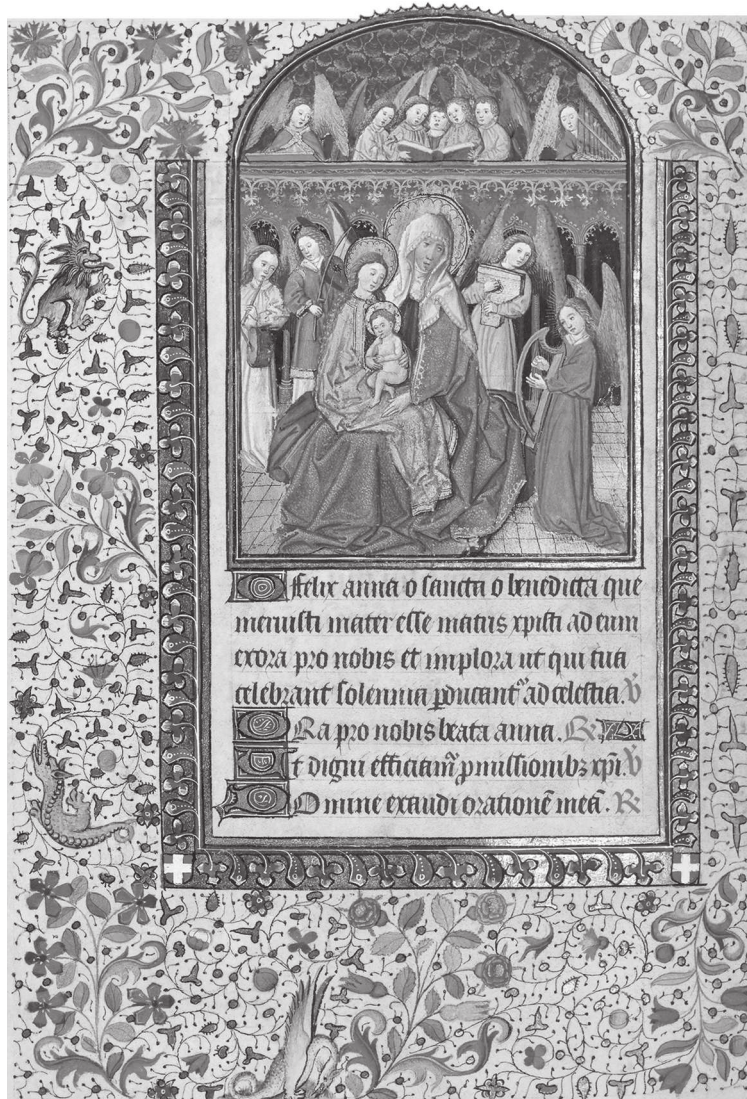 O felix anna o sancta o benedicta que
meruisti mater esse matris xpisti ad eum
exora pro nobis et implora ut qui tua
celebrant solennia pducant᷑ ad celestia. V̄
ORa pro nobis beata anna. R
Ut digni efficiam̄ ꝓmissionibꝫ xpi. V̄
Domine exaudi orationē meā. R